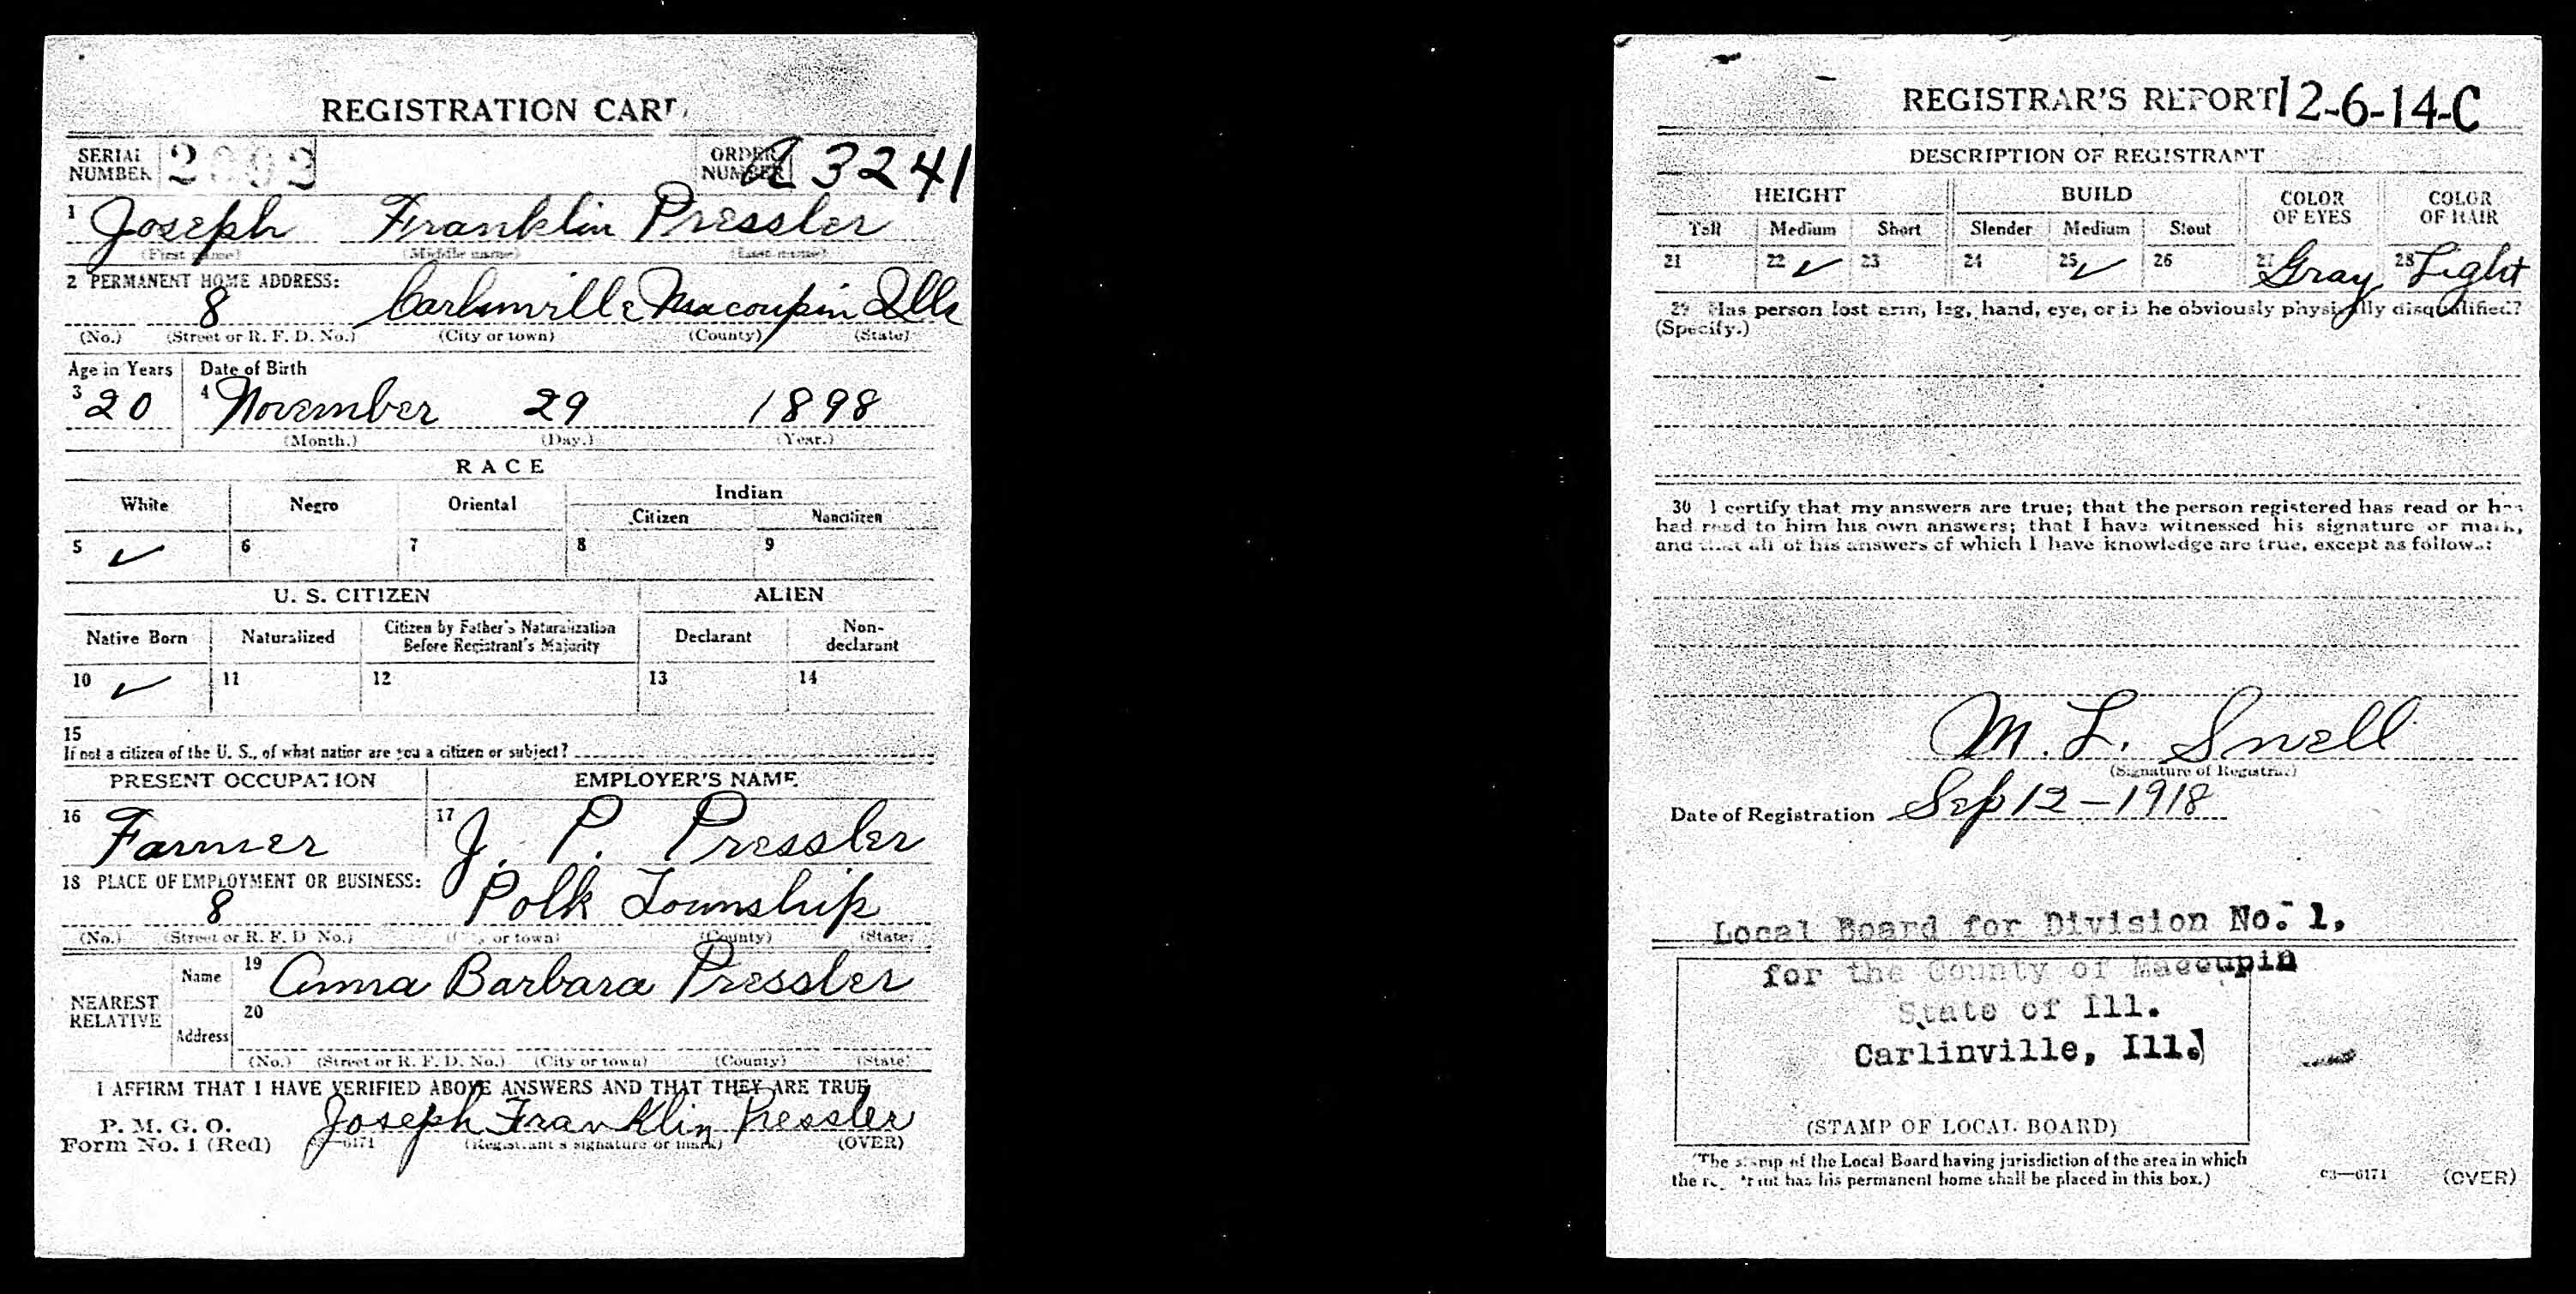 REGISTRATION CARD
SERIAL NUMBER ORDER NUMBER A 3241
1 Joseph Franklin Pressler
(First name) (Middle name) (Last name)
2 PERMANENT HOME ADDRESS:
8 Carlinville Macoupin Ills
(No.) (Street or R. F. D. No.) (City or town) (County) (State)
Age in Years Date of Birth
3 20 4 November 29 1898
(Month.) (Day.) (Year.)
RACE
White Negro Oriental Indian
Citizen Noncitizen
5 ✓ 6 7 8 9
U. S. CITIZEN ALIEN
Native Born Naturalized Citizen by Father's Naturalization Before Registrant's Majority Declarant Non-declarant
10 ✓ 11 12 13 14
15
If not a citizen of the U. S., of what nation are you a citizen or subject?
PRESENT OCCUPATION EMPLOYER'S NAME
16 Farmer 17 J. P. Pressler
18 PLACE OF EMPLOYMENT OR BUSINESS:
8 Polk Township
(No.) (Street or R. F. D. No.) (City or town) (County) (State)
NEAREST RELATIVE
Name 19 Anna Barbara Pressler
Address 20
(No.) (Street or R. F. D. No.) (City or town) (County) (State)
I AFFIRM THAT I HAVE VERIFIED ABOVE ANSWERS AND THAT THEY ARE TRUE
P. M. G. O.
Form No. 1 (Red) Joseph Franklin Pressler
03—6171 (Registrant's signature or mark) (OVER)
REGISTRAR'S REPORT 12-6-14-C
DESCRIPTION OF REGISTRANT
HEIGHT BUILD COLOR OF EYES COLOR OF HAIR
Tall Medium Short Slender Medium Stout
21 22 ✓ 23 24 25 ✓ 26 27 Gray 28 Light
29 Has person lost arm, leg, hand, eye, or is he obviously physically disqualified?
(Specify.)
30 I certify that my answers are true; that the person registered has read or has
had read to him his own answers; that I have witnessed his signature or mark,
and that all of his answers of which I have knowledge are true, except as follows:
M. L. Snell
(Signature of Registrar)
Date of Registration Sep 12 - 1918
Local Board for Division No. 1,
for the County of Macoupin
State of Ill.
Carlinville, Ill.
(STAMP OF LOCAL BOARD)
(The stamp of the Local Board having jurisdiction of the area in which
the registrant has his permanent home shall be placed in this box.)
03—6171 (OVER)